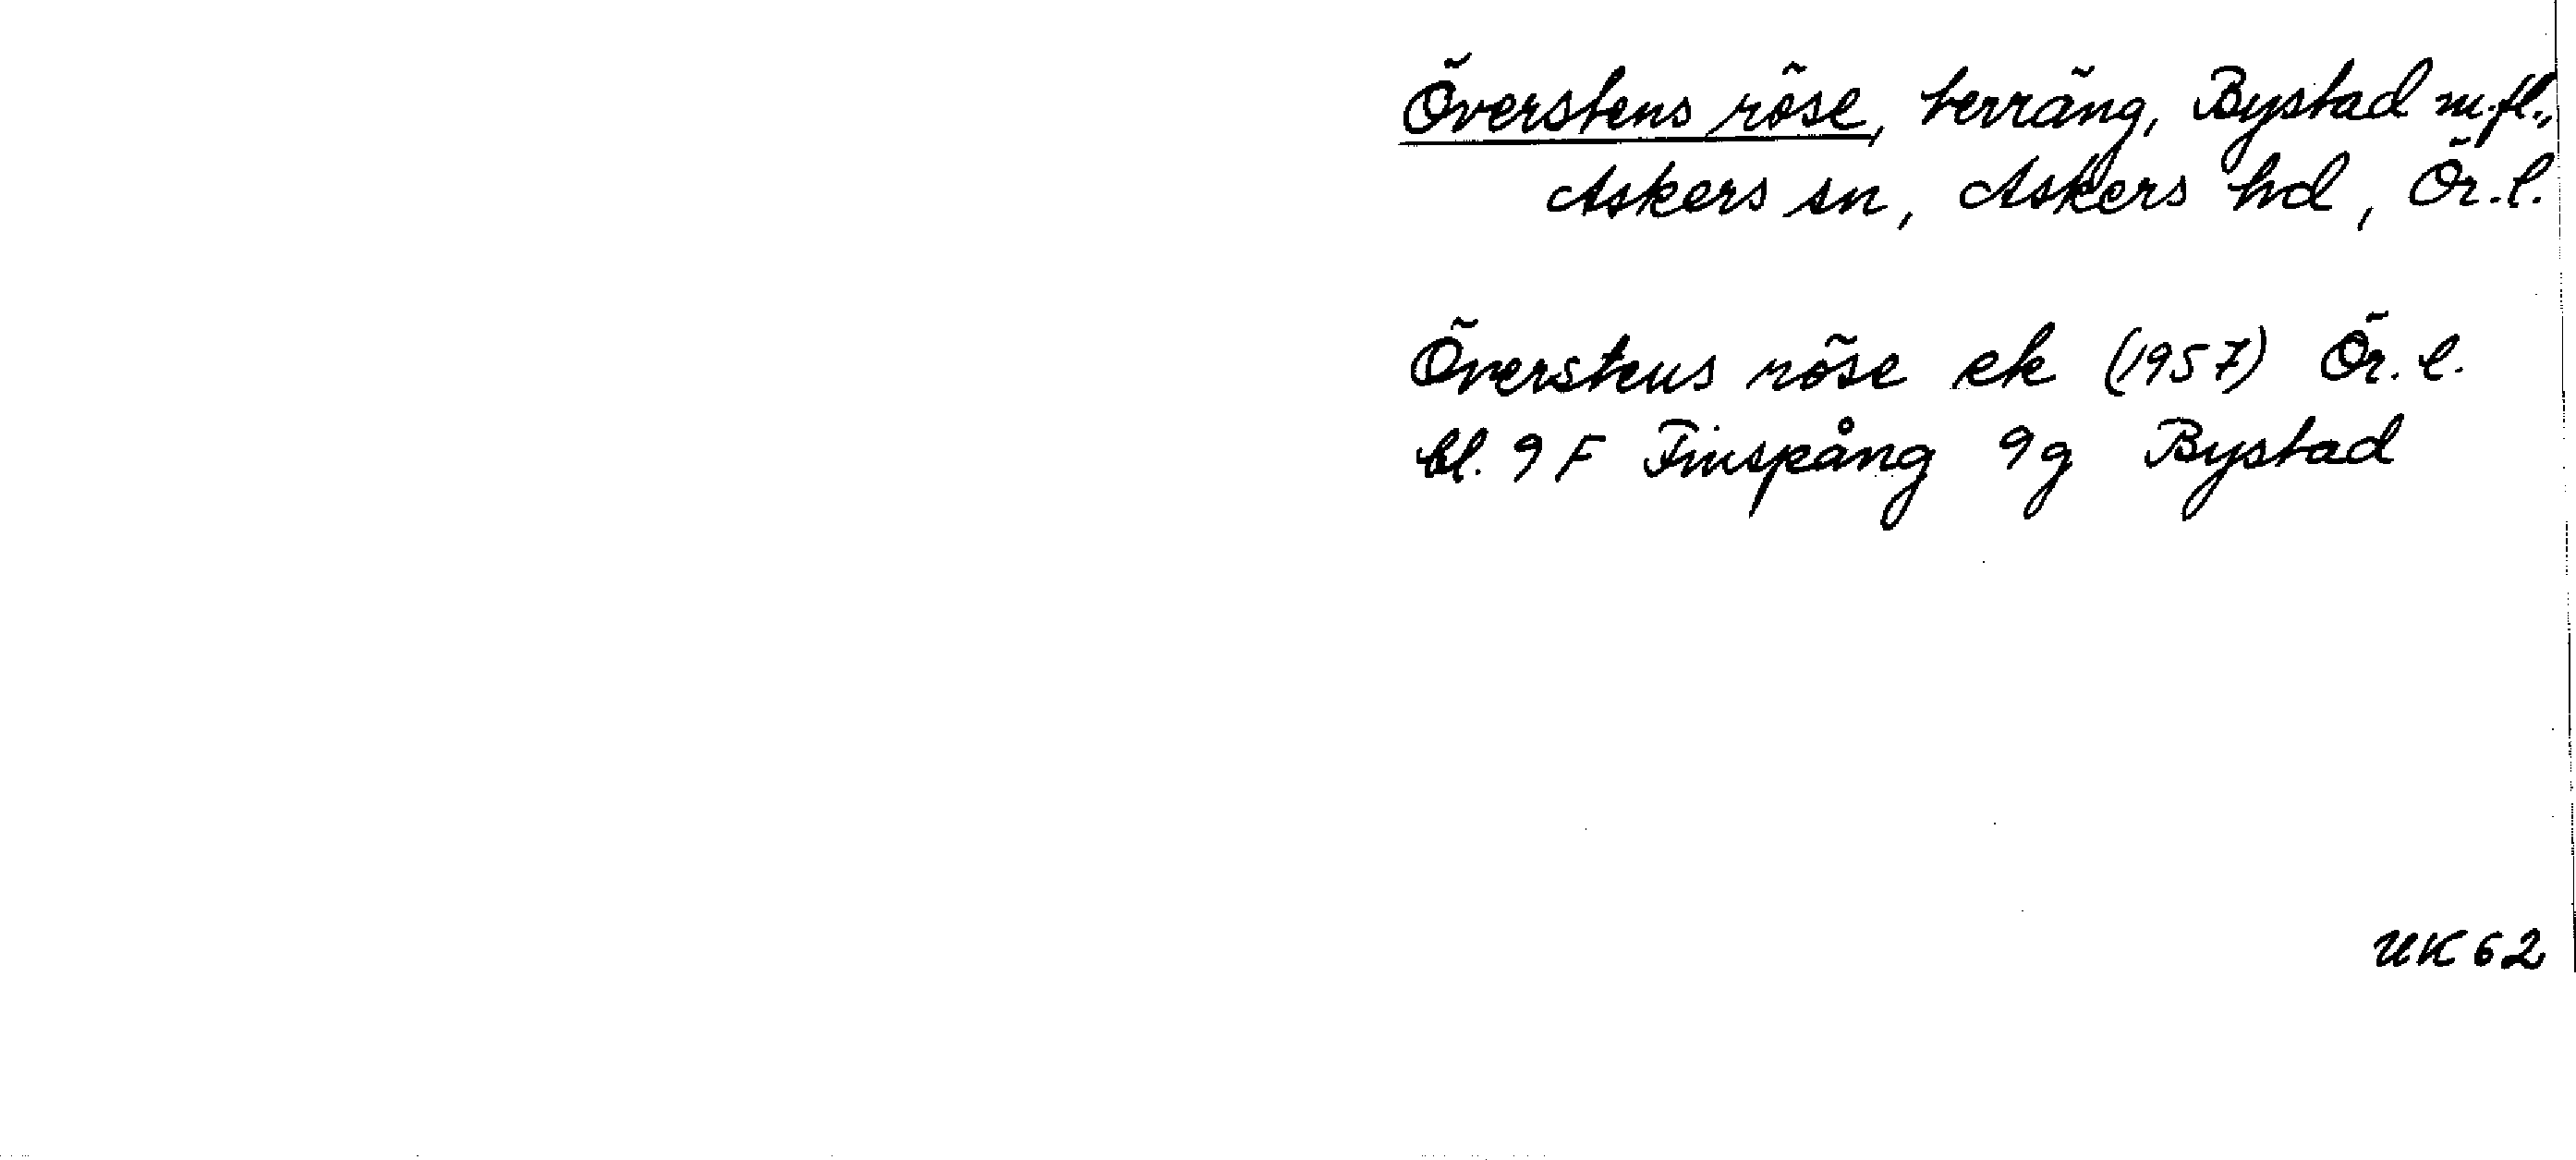 Överstens röse, terräng, Bystad m.fl.,
Askers sn, Askers hd, Ör.l.
Överstens röse ek (1957) Ör.l.
bl. 9 F Finspång 9g Bystad
UK 62